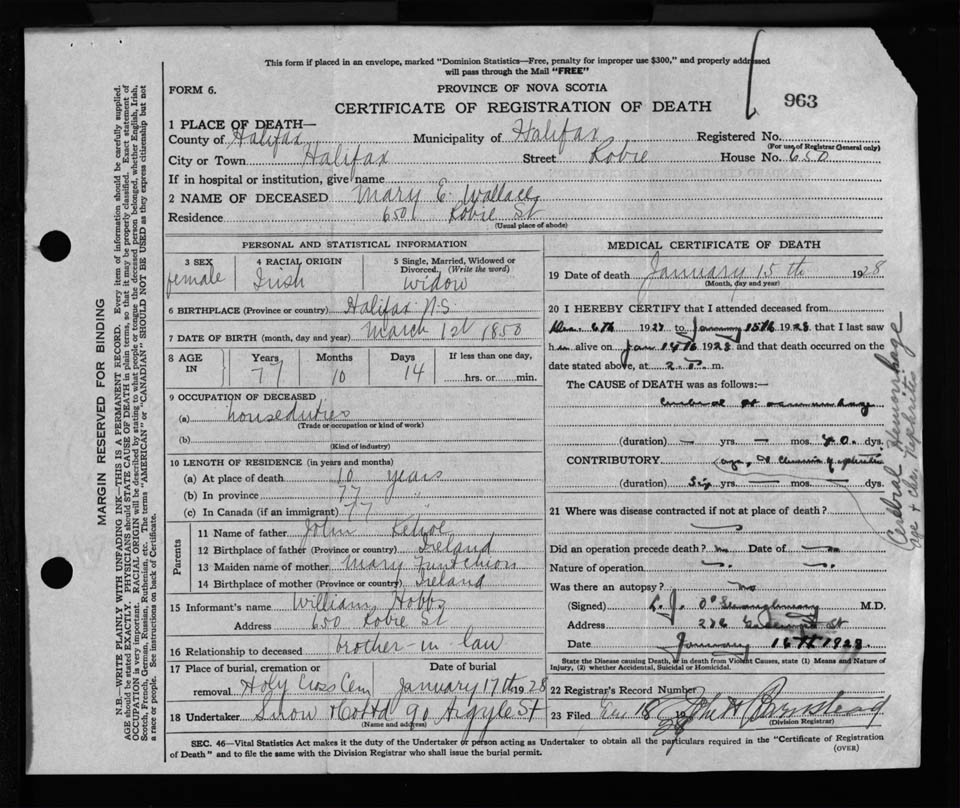 This form if placed in an envelope, marked "Dominion Statistics—Free, penalty for improper use $300," and properly addressed
will pass through the Mail "FREE"
FORM 6.
PROVINCE OF NOVA SCOTIA
CERTIFICATE OF REGISTRATION OF DEATH
963
1 PLACE OF DEATH—
County of Halifax Municipality of Halifax Registered No.
(For use of Registrar General only)
City or Town Halifax Street Robie House No. 650
If in hospital or institution, give name
2 NAME OF DECEASED Mary E. Wallace
Residence 650 Robie St
(Usual place of abode)
PERSONAL AND STATISTICAL INFORMATION
3 SEX
female
4 RACIAL ORIGIN
Irish
5 Single, Married, Widowed or
Divorced. (Write the word)
widow
6 BIRTHPLACE (Province or country) Halifax N.S.
7 DATE OF BIRTH (month, day and year) March 1st 1850
8 AGE IN
Years Months Days If less than one day,
77 10 14 hrs. or min.
9 OCCUPATION OF DECEASED
(a) houseduties
(Trade or occupation or kind of work)
(b)
(Kind of industry)
10 LENGTH OF RESIDENCE (in years and months)
(a) At place of death 10 years
(b) In province 77 "
(c) In Canada (if an immigrant) 77 "
Parents
11 Name of father John Kehoe
12 Birthplace of father (Province or country) Ireland
13 Maiden name of mother Mary Funcheon
14 Birthplace of mother (Province or country) Ireland
15 Informant's name William Hobbs
Address 650 Robie St
16 Relationship to deceased brother-in law
17 Place of burial, cremation or Date of burial
removal Holy Cross Cem January 17th 28
18 Undertaker Snow & Co Ltd 90 Argyle St
(Name and address)
MEDICAL CERTIFICATE OF DEATH
19 Date of death January 15th 1928
(Month, day and year)
20 I HEREBY CERTIFY that I attended deceased from
6th 192 to January 15th 1928 that I last saw
h alive on Jan 14th 1928 and that death occurred on the
date stated above, at 2 m.
The CAUSE of DEATH was as follows:—
Cerebral Haemorrhage
(duration) — yrs. — mos. dys.
CONTRIBUTORY age, & Chronic Nephritis
(duration) Six yrs. — mos. — dys.
21 Where was disease contracted if not at place of death?
Did an operation precede death? no Date of —
Nature of operation
Was there an autopsy? no
(Signed) L. J. M.D.
Address 226 St
Date January 16th 1928
State the Disease causing Death, or in death from Violent Causes, state (1) Means and Nature of
Injury, (2) whether Accidental, Suicidal or Homicidal.
22 Registrar's Record Number
23 Filed 18 1928
(Division Registrar)
Cerebral Hemorrhage
Age + chr. Nephritis
SEC. 46—Vital Statistics Act makes it the duty of the Undertaker or person acting as Undertaker to obtain all the particulars required in the "Certificate of Registration
of Death" and to file the same with the Division Registrar who shall issue the burial permit. (OVER)
MARGIN RESERVED FOR BINDING
N.B.—WRITE PLAINLY WITH UNFADING INK—THIS IS A PERMANENT RECORD. Every item of information should be carefully supplied.
AGE should be stated EXACTLY. PHYSICIANS should STATE CAUSE OF DEATH in plain terms, so that it may be properly classified. Exact statement of
OCCUPATION is very important. RACIAL ORIGIN will be described by stating to what people or tongue the deceased person belonged, whether English, Irish,
Scotch, French, German, Russian, Ruthenian, etc. The terms "AMERICAN" or "CANADIAN" SHOULD NOT BE USED as they express citizenship but not
a race or people. See instructions on back of Certificate.